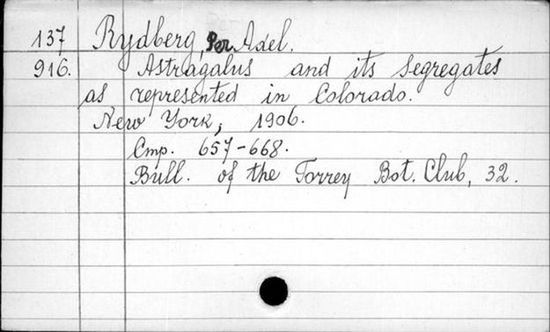 137 Rydberg, Per Axel.
916. Astragalus and its segregates
as represented in Colorado.
New York, 1906.
Стр. 657-668.
Bull. of the Torrey Bot. Club, 32.